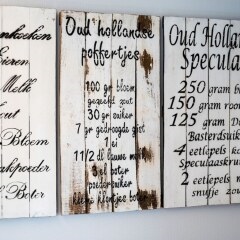 nkoeken
Eieren
Melk
out
Bloem
akpoeder
Boter
Oud hollandse
poffertjes
100 gr bloem
gezeeft zout
30 gr suiker
7 gr gedroogde gist
1 ei
11/2 dl lauwe melk
3 el boter
poedersuiker
kleine klontjes boter
Oud Holland
Speculaa
250 gram b
150 gram roo
125 gram Do
Basterdsuik
4 eetlepels ko
Speculaaskrui
2 eetlepels m
snufje zou